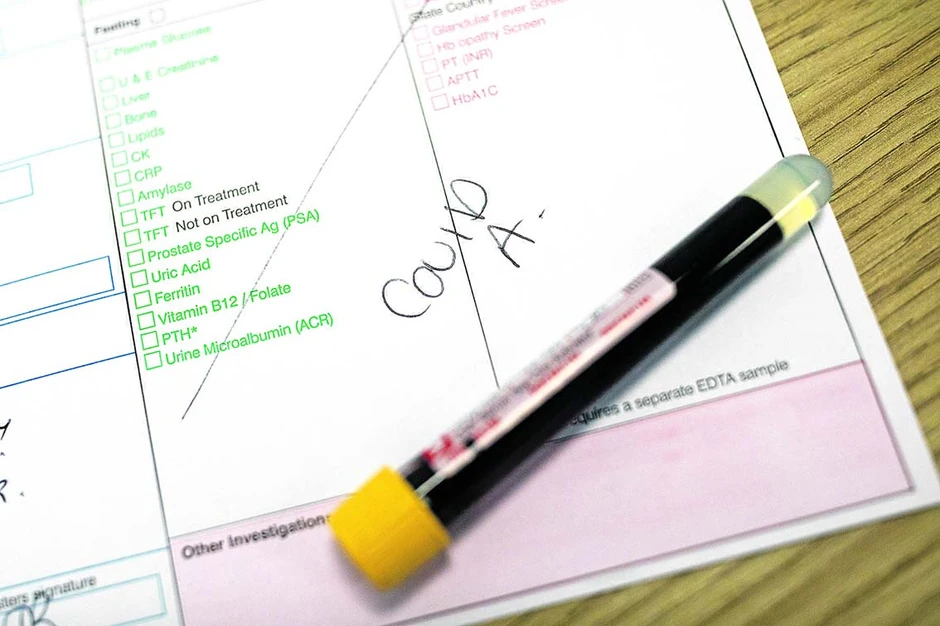 Feeling
Plasma Glucose
U & E Creatinine
Liver
Bone
Lipids
CK
CRP
Amylase
TFT On Treatment
TFT Not on Treatment
Prostate Specific Ag (PSA)
Uric Acid
Ferritin
Vitamin B12 / Folate
PTH*
Urine Microalbumin (ACR)
State Country
Glandular Fever Screen
Hb opathy Screen
PT (INR)
APTT
HbA1C
COVID
A.
equires a separate EDTA sample
Other Investigation
signature